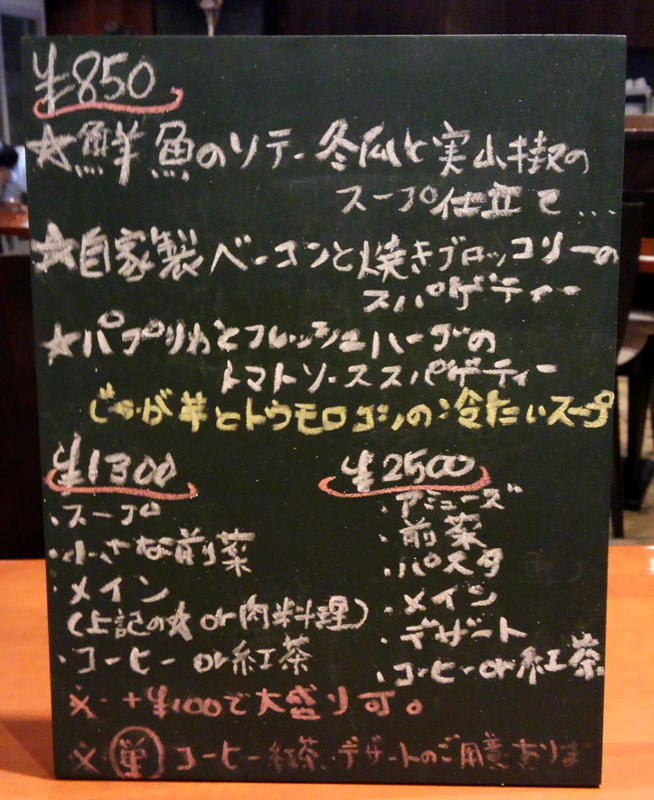 ¥850
★鮮魚のソテー 冬瓜と実山椒の
スープ仕立て...
★自家製ベーコンと焼きブロッコリーの
スパゲティー
★パプリカとフレッシュハーブの
トマトソーススパゲティー
じゃが芋とトウモロコシの冷たいスープ
¥1300
・スープ
・小さな前菜
・メイン
(上記の★or肉料理)
・コーヒーor紅茶
¥2500
・アミューズ
・前菜
・パスタ
・メイン
・デザート
・コーヒーor紅茶
※ +¥100で大盛り可。
※ 単 コーヒー・紅茶、デザートのご用意ありま